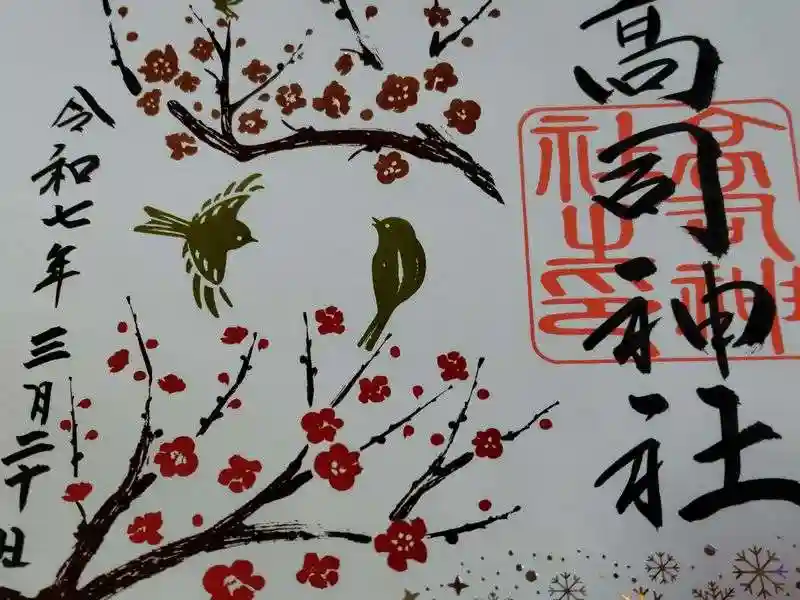 高司神社
高司神社之印
令和七年三月二十日